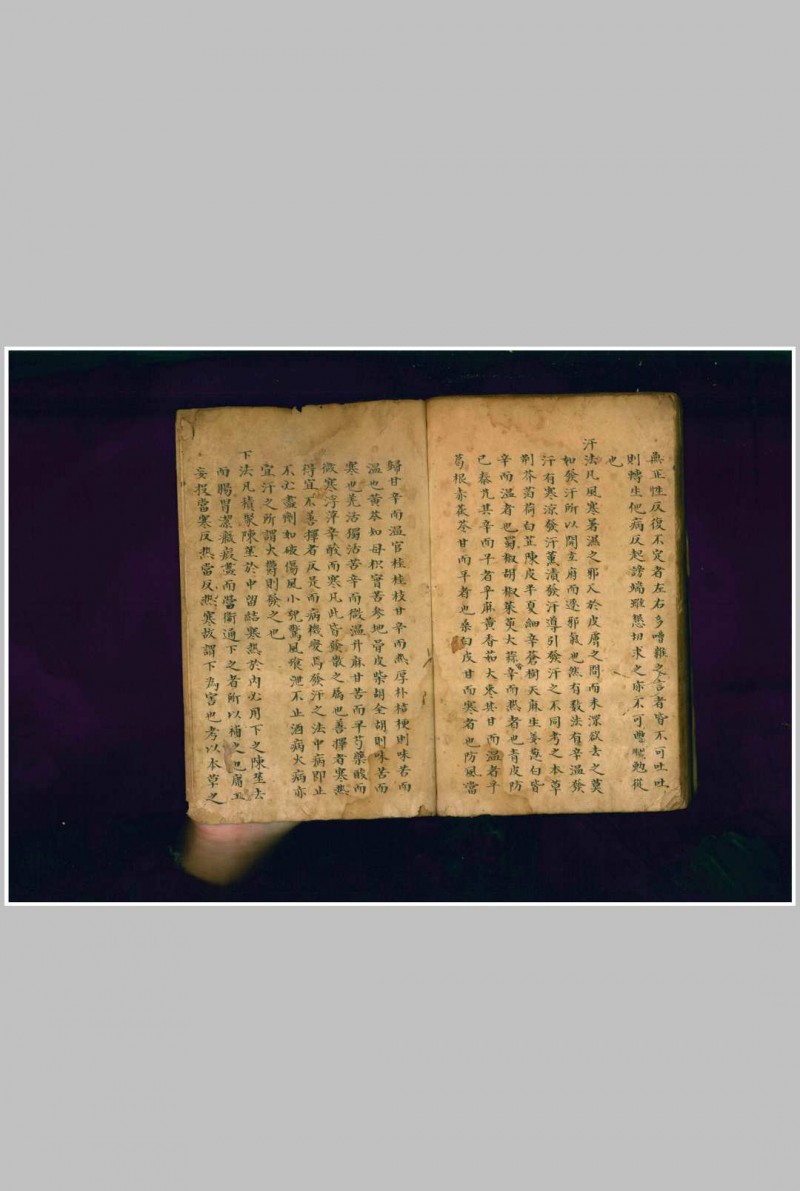 無正性反復不定者左右多嘈雜之言者皆不可吐吐
則轉生他病反起謗端雖懇切求之亦不可
也
汗法凡風寒暑濕之邪入於皮膚之間而未深欲去之莫
如發汗所以開玄府而逐邪氣也然有数法有辛温發
汗有寒凉發汗薰漬發汗導引發汗之不同考之本草
荆芥薄荷白芷陳皮半夏細辛蒼樹天麻生姜葱白皆
辛而温者也蜀椒胡椒茱萸大蒜辛而熱者也青皮防
已秦艽其辛而平者乎麻黄香茹大寒其甘而温者乎
葛根赤茯苓甘而平者也桑白皮甘而寒者也防風當
歸甘辛而温官桂桂枝甘辛而熱厚朴桔梗則味苦而
温也黄芩知母枳實苦参地骨皮柴胡全胡則味苦而
寒也羌活獨活苦辛而微温升麻甘苦而平芍藥酸而
微寒浮萍辛酸而寒凡此皆發散之属也善擇者寒熱
得宜不善擇者反是而病機變焉發汗之法中病即止
不必盡劑如破傷風小兒驚風飧泄不止酒病火病亦
宜汗之所謂火鬱則發之也
下法凡積聚陳莝於中留結寒熱於內必用下之陳莝去
而腸胃潔癥瘕盡而營衛通下之者所以補之也庸工
妄投當寒反熱當反熱寒故謂下為害也考以本草之